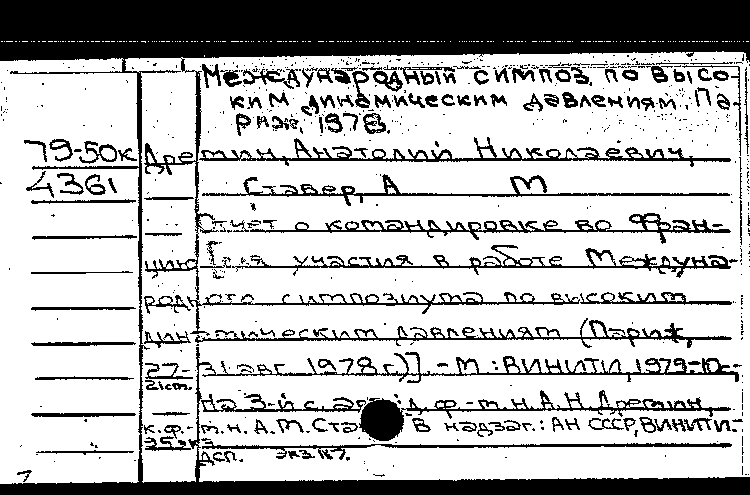 Международный симпоз. по высо-
ким динамическим давлениям. Па-
риж, 1978.
79-50к Дремин, Анатолий Николаевич,
4361 Ставер, А М
Отчет о командировке во Фран-
цию [для участия в работе Междуна-
родного симпозиума по высоким
динамическим давлениям (Париж,
27-31 авг. 1978 г.)]. - М : ВИНИТИ, 1979-10с.;
21см.
На 3-й с. авт.: д.ф.-м.н. А.Н. Дремин,
к.ф.-м.н. А.М. Ста В надзаг.: АН СССР, ВИНИТИ.-
25 экз.
ДСП.